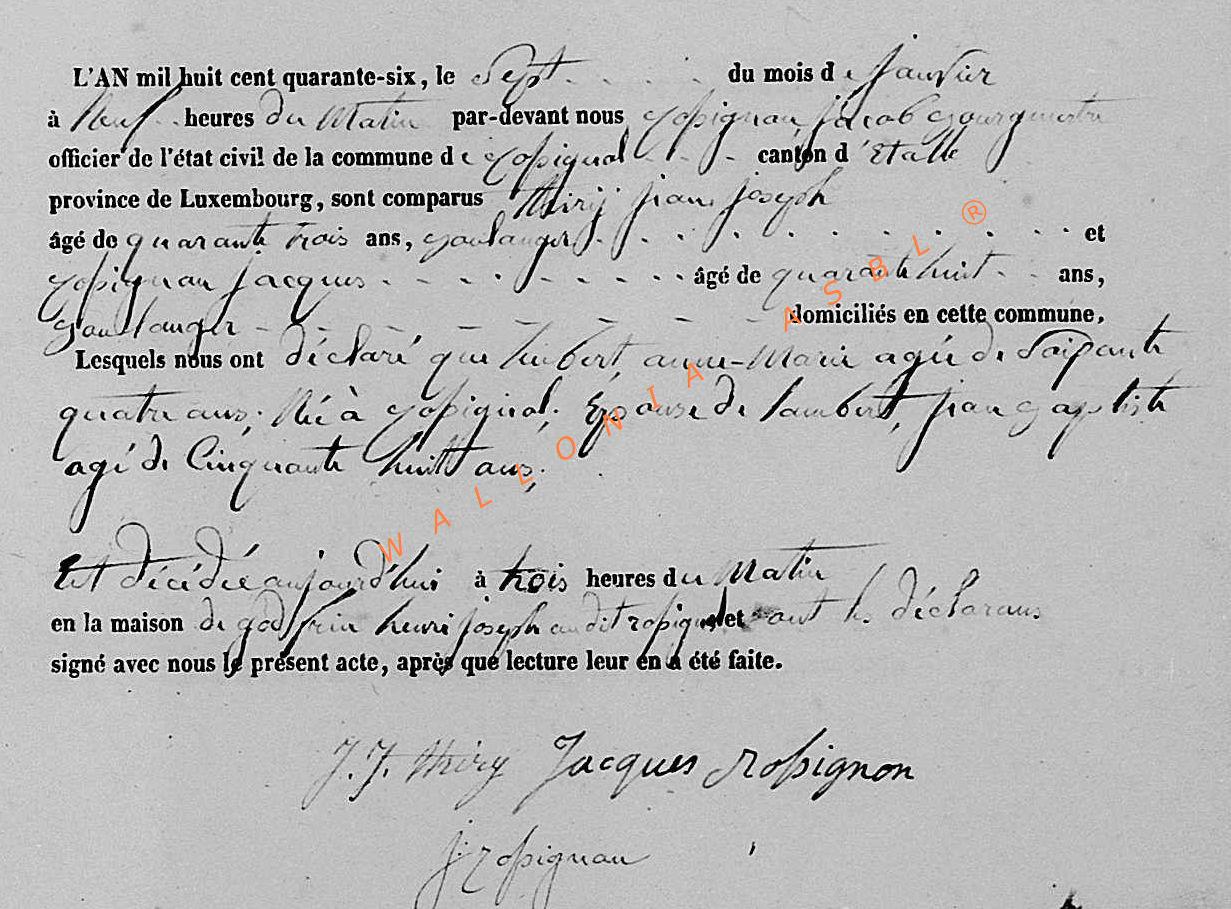 L'AN mil huit cent quarante-six, le Sept . . . . du mois de Janvier
à Neuf . . heures du Matin par-devant nous Rossignon Jacob Bourgmestre
officier de l'état civil de la commune de Rossignol - - - canton d'Etalle
province de Luxembourg, sont comparus thiry jean joseph
âgé de quarante trois ans, Boulanger . . . . . . . . . . et
Rossignon jacques - - - - - - - - - âgé de quarante huit - - ans,
Boulanger - - - - - - - - - domiciliés en cette commune.
Lesquels nous ont déclaré que anne-Marie agée de Soisante
quatre ans, Née à Rossignol, Epouse de lambert, jean Baptiste
agé de Cinquante huitt ans,
Est décédée aujourd'hui à trois heures du Matin
en la maison de godfrin henri joseph audit rossignol et ont les déclarans
signé avec nous le présent acte, après que lecture leur en a été faite.
J. J. thiry Jacques Rossignon
j rossignon
WALLONIA ASBL ®